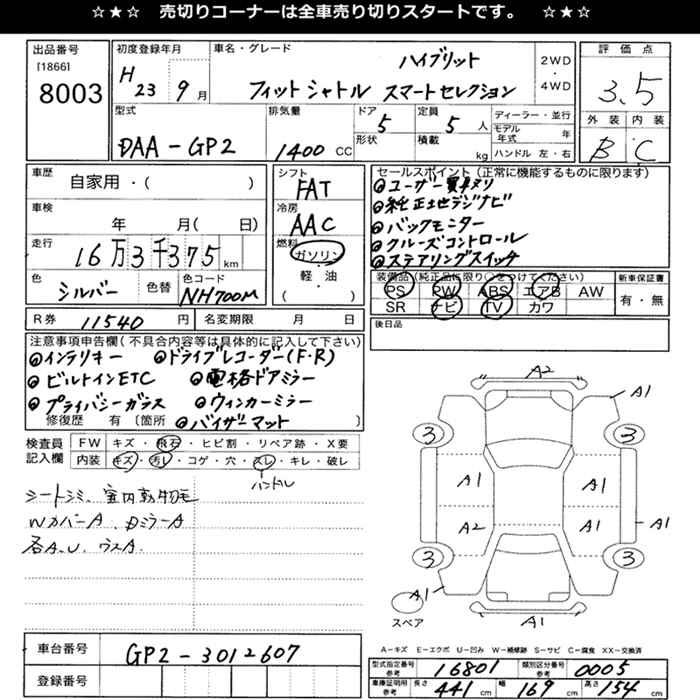 ☆★☆ 売切りコーナーは全車売り切りスタートです。 ☆★☆
出品番号
[1866]
8003
初度登録年月
H23 9月
車名・グレード
ハイブリット
フィットシャトル スマートセレクション
2WD
・
4WD
評価点
3.5
外装 内装
B C
型式
DAA-GP2
排気量
1400 CC
ドア
5
形状
定員
5 人
積載
kg
ディーラー・並行
モデル年式 年
ハンドル 左・右
車歴
自家用・( )
車検
年 月( 日)
走行
16万3千375 km
色
シルバー
色替
色コード
NH700M
シフト
FAT
冷房
AAC
燃料
ガソリン
・
軽・油
( )
セールスポイント(正常に機能するものに限ります)
◎ユーザー買取り
◎純正地デジナビ
◎バックモニター
◎クルーズコントロール
◎ステアリングスイッチ
装備品(純正品に限り○をつけてください)
PS PW ABS エアB AW
SR ナビ TV カワ
新車保証書
有・無
後日品
R券 11540 円 名変期限 月 日
注意事項申告欄(不具合内容等は具体的に記入して下さい)
◎インテリキー ◎ドライブレコーダー(F・R)
◎ビルトインETC ◎電格ドアミラー
◎プライバシーガラス ◎ウィンカーミラー
修復歴 有 〔箇所 ◎バイザーマット 〕
検査員記入欄
FW キズ・飛石・ヒビ割・リペア跡・X要
内装 キズ・汚レ・コゲ・穴・スレ・キレ・破レ
ハンドル
シートシミ、室内動物毛
WカバーA、DミラーA
各A.U、ウスA.
A2
A1
3 3
A1 A1
A2 A1
A1
3 3
A1
A1
スペア
車台番号 GP2-3012607
登録番号
A-キズ E-エクボ U-凹み W-補修跡 S-サビ C-腐食 XX-交換済
型式指定番号参考 16801 類別区分番号参考 0005
車庫証明用参考 長さ 441 cm 幅 169 cm 高さ 154 cm